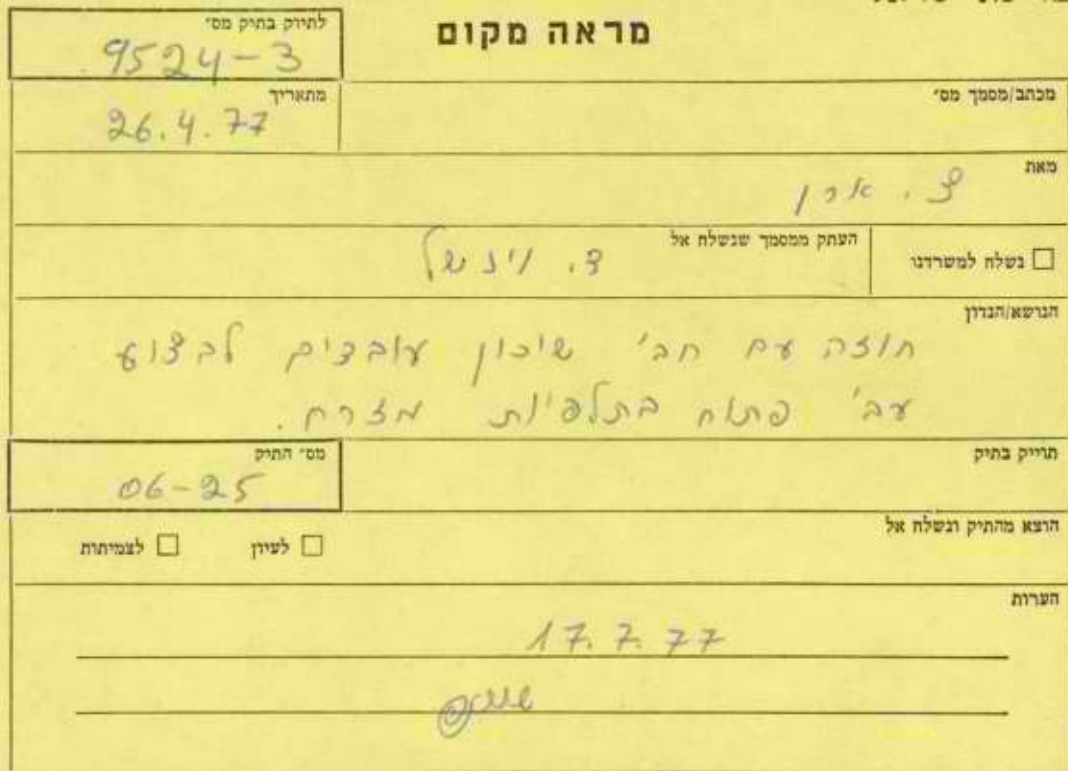 מראה מקום
לתיוק בתיק מס׳
9524-3
מכתב/מסמך מס׳
מתאריך
26.4.77
מאת
צ. ארן
נשלח למשרדנו
העתק ממסמך שנשלח אל
ד. וינשל
הנושא/הנדון
חוזה עם חב' שיכון עובדים לבצוע
עב' פתוח בתלפיות מזרח.
תוייק בתיק
מס׳ התיק
06-25
הוצא מהתיק ונשלח אל
לעיון
לצמיתות
הערות
17.7.77